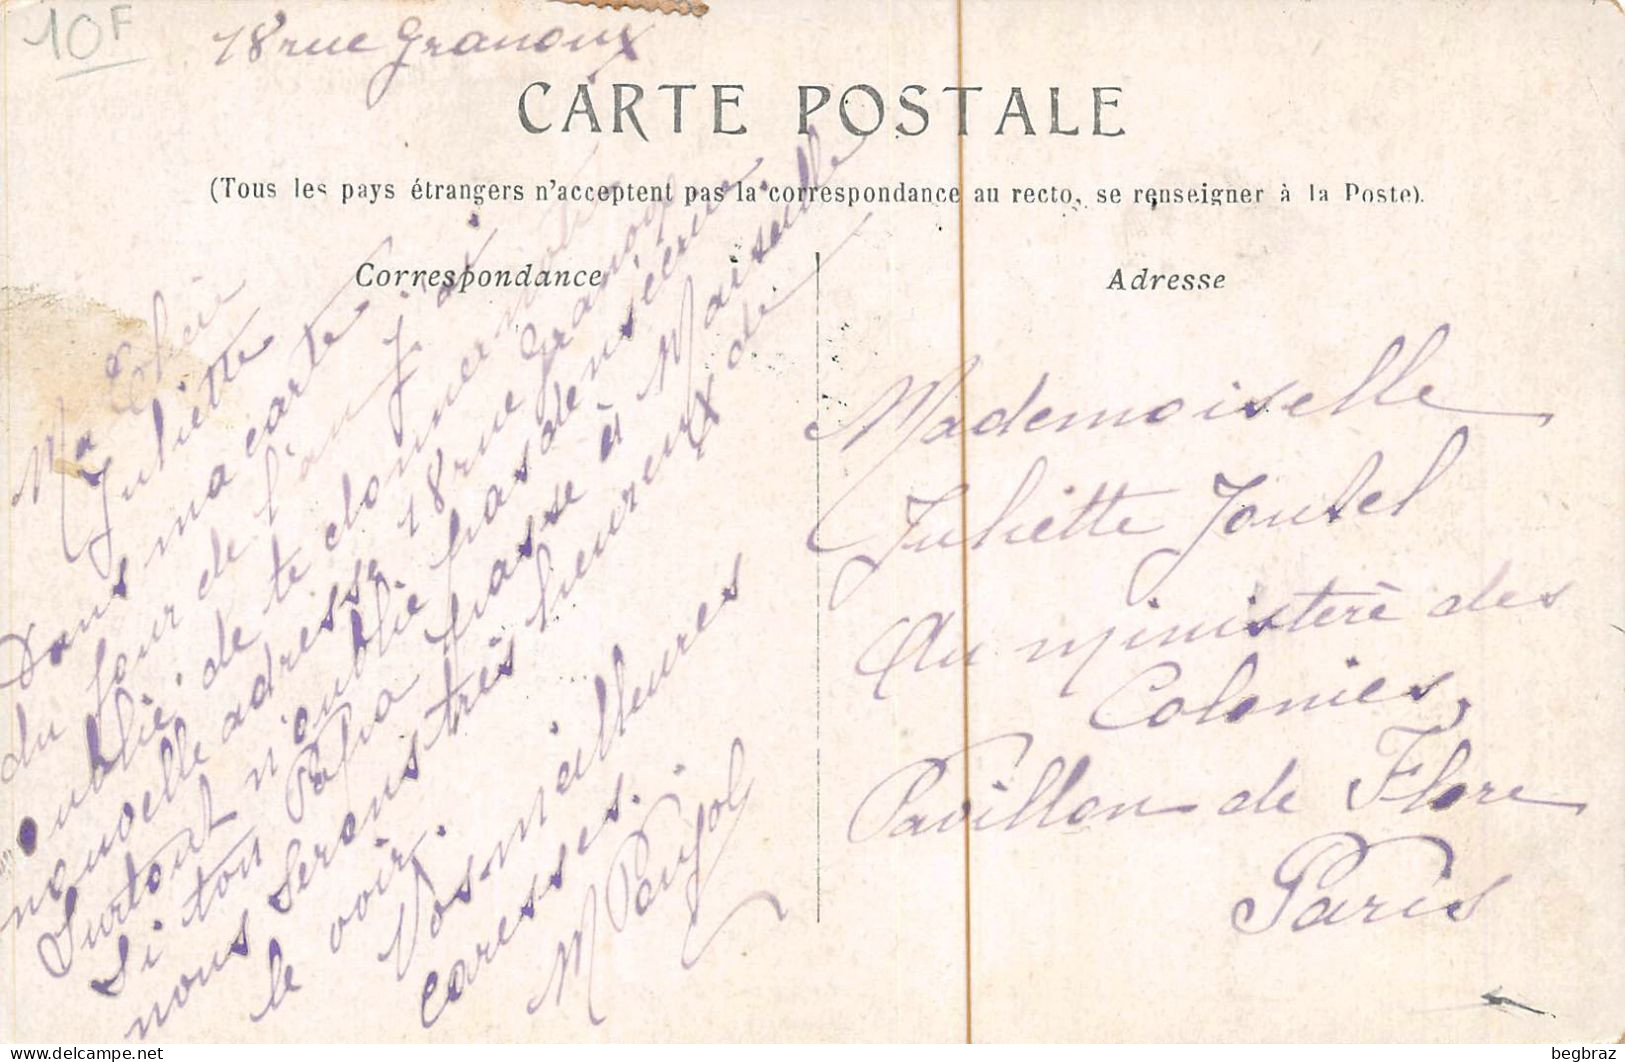 10F
18 rue Granoux
CARTE POSTALE
(Tous les pays étrangers n'acceptent pas la correspondance au recto, se renseigner à la Poste).
Correspondance
Adresse
Ma Chère
Juliette
Dans ma carte
du jour de l'an j'ai
oublié de te donner notre
nouvelle adresse 18 rue Granoux
Surtout n'oublie pas de m'écrire.
Si ton Papa passe à Marseille
nous serons très heureux de
le voir.
Vos meilleures
caresses.
M Payol
Mademoiselle
Juliette Joubel
Au Ministerè des
Colonies,
Pavillon de Flore
Paris
begbraz